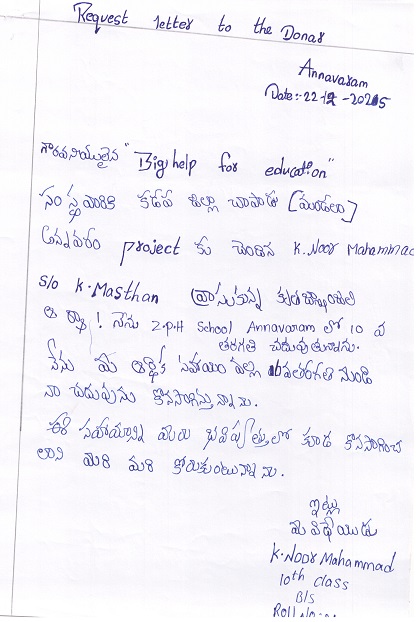 Request letter to the Donar
Annavaram
Date:- 22-12-2015
గౌరవనీయులైన "Big help for education"
సంస్థవారికి కడప జిల్లా చాపాడు (మండలం)
అన్నవరం project కు చెందిన K.Noor Mahammad
S/o K.Masthan వ్రాసుకున్న
ఆర్యా! నేను Z.P.H School Annavaram లో 10 వ
తరగతి చదువుతున్నాను.
నేను మీ ఆర్థిక సహాయం వల్ల తరగతి నుండి
నా చదువును కొనసాగిస్తున్నాను.
ఈ సహాయాన్ని మీరు భవిష్యత్తులో కూడ కొనసాగించ
లాని మరి మరి కోరుకుంటున్నాను.
ఇట్లు
మీ విధేయుడు
K.Noor Mahammad
10th class
B/S
Roll No:-